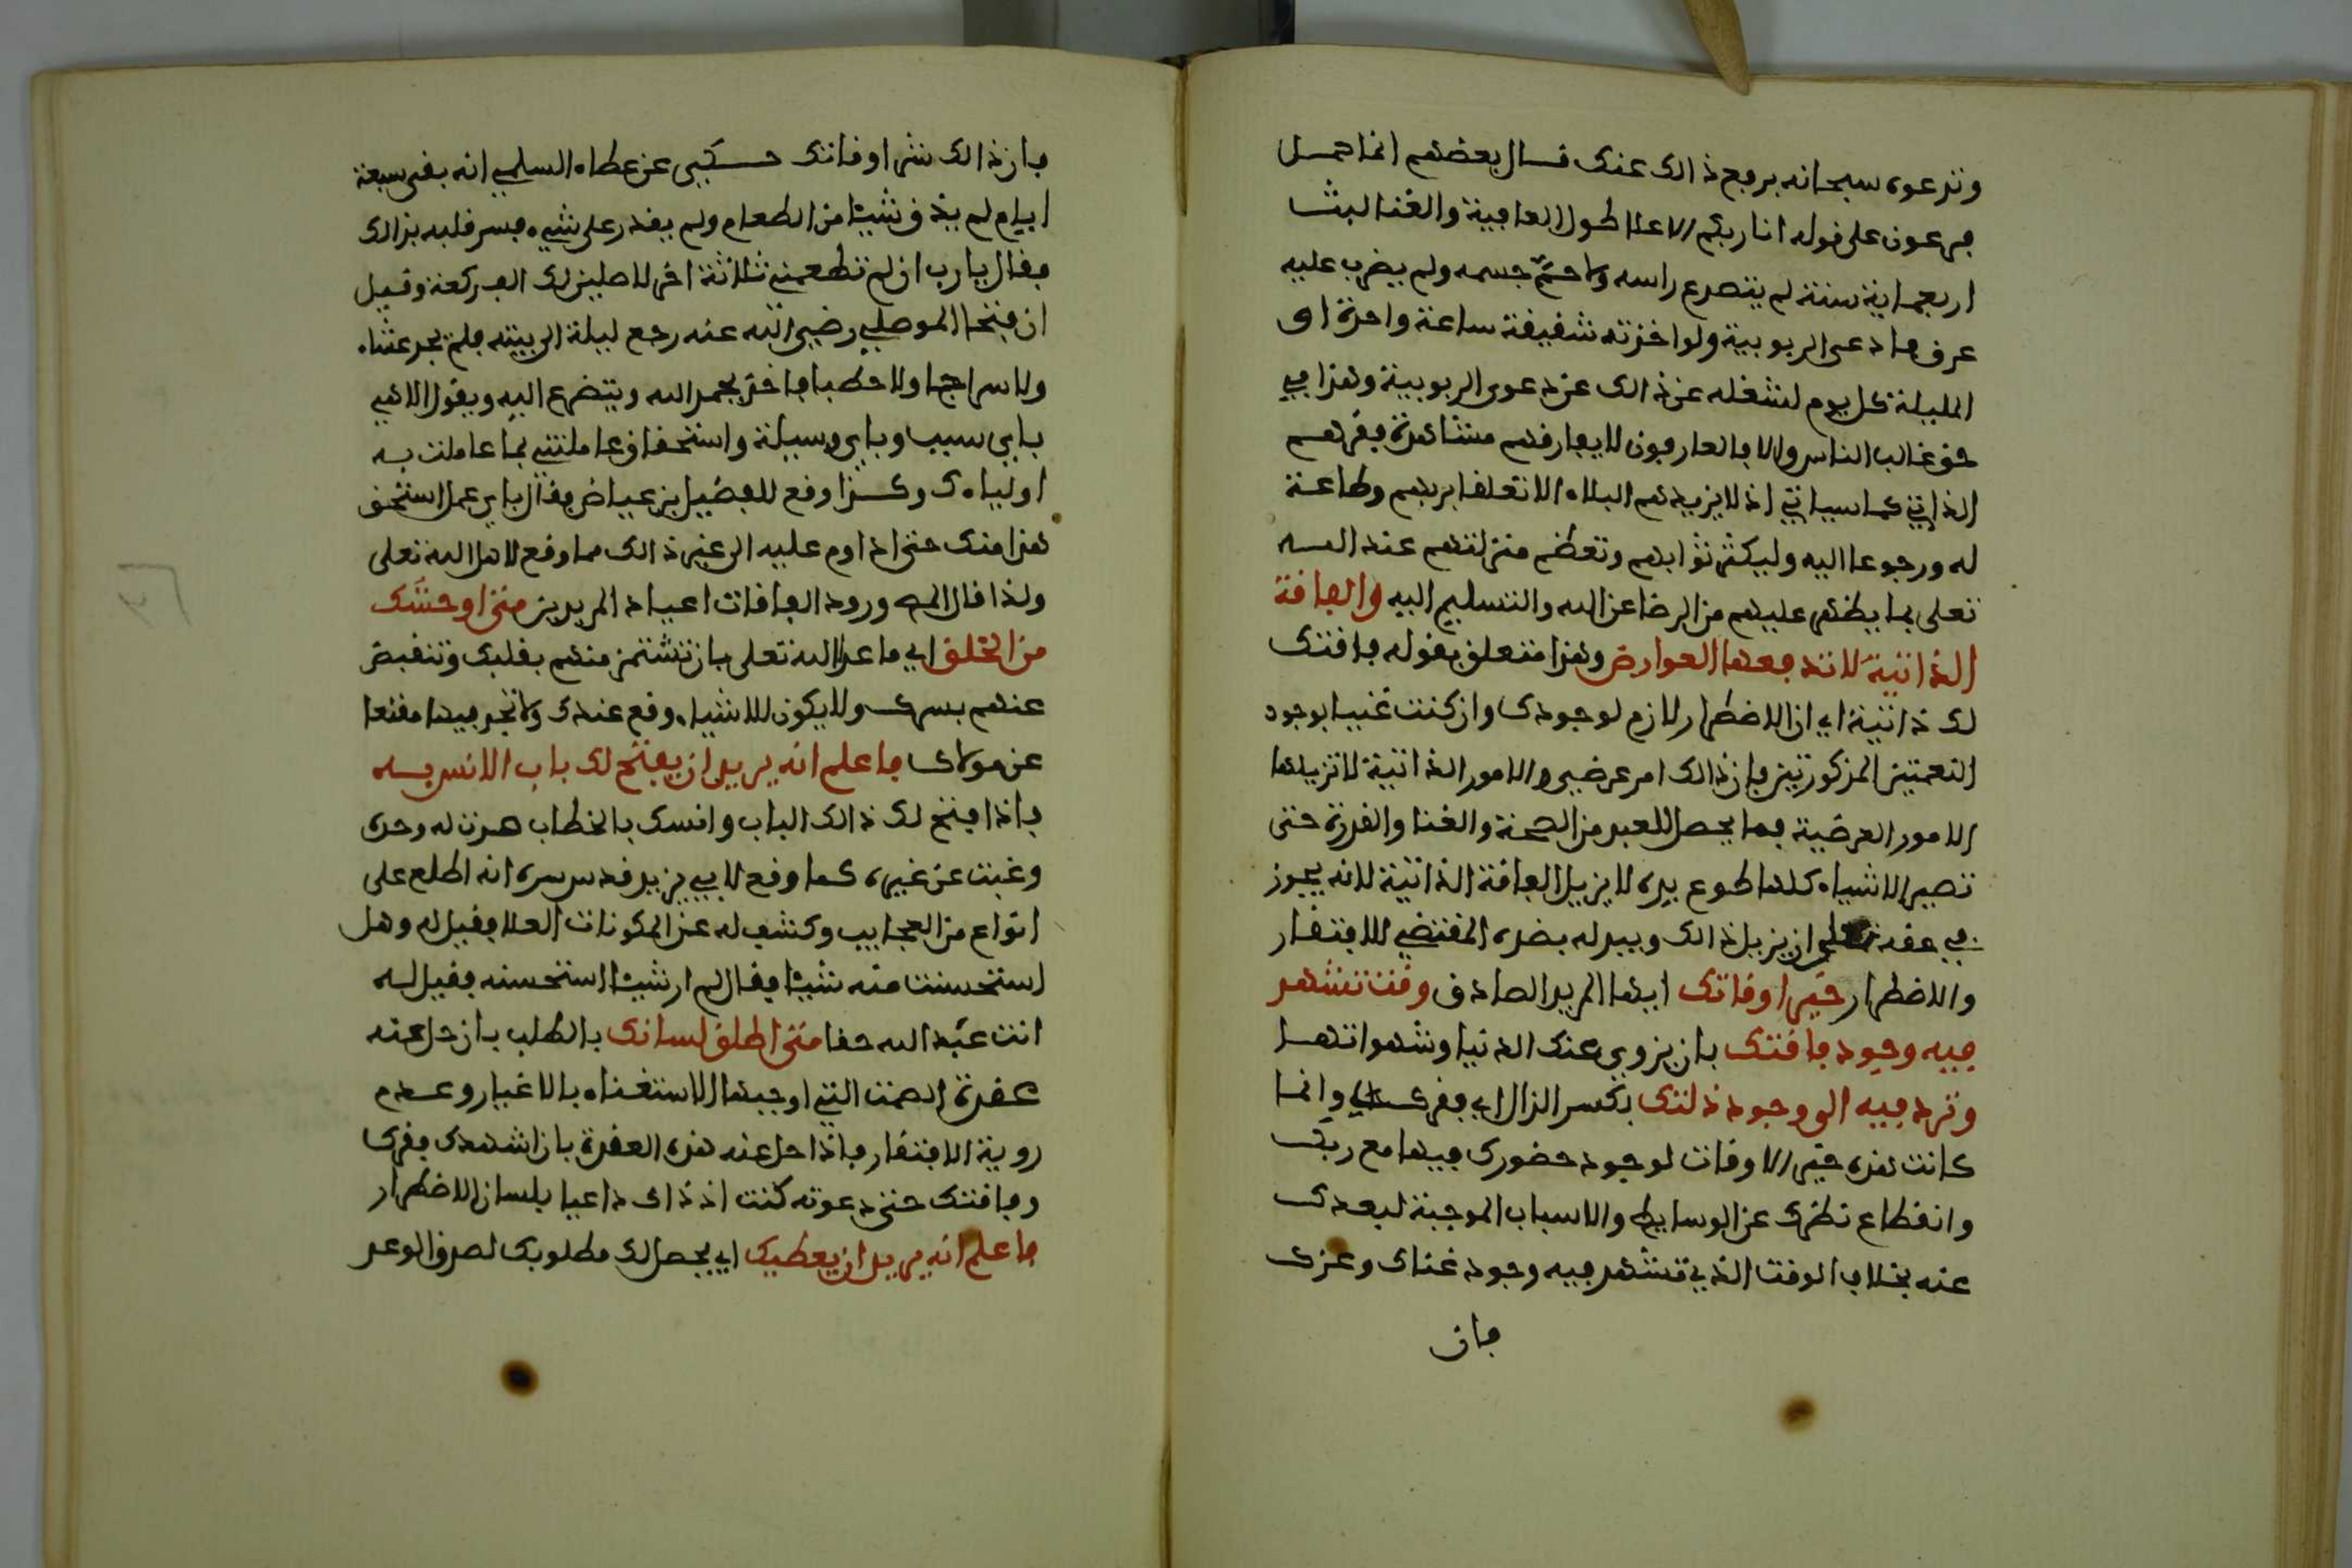 وتدعوه سبحانه برفع ذالك عنك قال بعضهم انما حمل
فرعون على قوله انا ربكم الاعلا طول العافية والغنا لبث
اربعماية سنة لم يتصدع راسه ولا حم جسمه ولم يضرب عليه
عرق فادعى الربوبية ولو اخذته شقيقة ساعة واحدة او
المليلة كل يوم لشغله عن ذالك عن دعوى الربوبية وهذا في
حق غالب الناس والا فالعارفون لا يفارقهم مشاهدة فقرهم
الذاتي كما سياتي اذ لا يزيدهم البلاء الا تعلقا بربهم وطاعة
له ورجوعا اليه وليكثر ثوابهم وتعظم منزلتهم عند الله
تعلى بما يظهر عليهم من الرضا عن الله والتسليم اليه والفاقة
الذاتية لا تدفعها العوارض وهذا متعلق بقوله فاقتك
لك ذاتية اي ان الاضطرار لازم لوجودك وان كنت غنيا بوجود
النعمتين المذكورتين فان ذالك امر عرضي والامور الذاتية لا تزيلها
الامور العرضية فما يحصل للعبد من الصحة والغنا والقدرة حتى
تصير الاشياء كلها طوع يده لا يزيل الفاقة الذاتية لانه يجوز
في حقه تعلى ان يزيل ذالك ويبدله بضده المقتضي للافتقار
والاضطرار خير اوقاتك ايها المريد الصادق وقت تشهد
فيه وجود فاقتك بان يزوي عنك الدنيا وشهواتها
وترد فيه الى وجود ذلتك بكسر الذال اي فقرك وانما
كانت هذه خير الاوقات لوجود حضورك فيها مع ربك
وانقطاع نظرك عن الوسايط والاسباب الموجبة لبعدك
عنه بخلاف الوقت الذي تشهد فيه وجود غناك وعزك
فان
فان ذالك شر اوقاتك حكي عن عطاء السلمي انه بقى سبعة
ايام لم يذق شيئا من الطعام ولم يقدر على شيء فسر قلبه بذالك
فقال يا رب ان لم تطعمني ثلاثة اخر لاصلين لك الف ركعة وقيل
ان فتحا الموصلي رضي الله عنه رجع ليلة الى بيته فلم يجد عشاء
ولا سراجا ولا حطبا فاخذ يحمد الله ويتضرع اليه ويقول الاهي
باي سبب وباي وسيلة واستحقاق عاملتني بما عاملت به
اولياءك وكذا وقع للفضيل بن عياض فقال باي عمل استحق
هذا منك حتى اداوم عليه الى غير ذالك مما وقع لاهل الله تعلى
ولذا قال المص ورود الفاقات اعياد المريدين متى اوحشك
من الخلق اي ما عدا الله تعلى بان تشتمز منهم بقلبك وتنقبض
عنهم بسرك ولا يكون للاشياء وقع عندك ولا تجد فيها مقنعا
عن مولاك فاعلم انه يريد ان يفتح لك باب الانس به
فاذا فتح لك ذالك الباب وانسك بالخطاب صرت له وحده
وغبت عن غيره كما وقع لابي يزيد قدس سره انه اطلع على
انواع من العجايب وكشف له عن المكونات العلا فقيل له وهل
استحسنت منه شيئا فقال لم ار شيئا استحسنه فقيل له
انت عبد الله حقا متى اطلق لسانك بالطلب بان حل عنه
عقدة الصمت التي اوجبها الاستغناء بالاغيار وعدم
روية الافتقار فاذا حل عنه هذه العقدة بان اشهدك فقرك
وفاقتك حتى دعوته كنت اذ ذاك داعيا بلسان الاضطرار
فاعلم انه يريد ان يعطيك اي يحصل لك مطلوبك لصدق الوعد